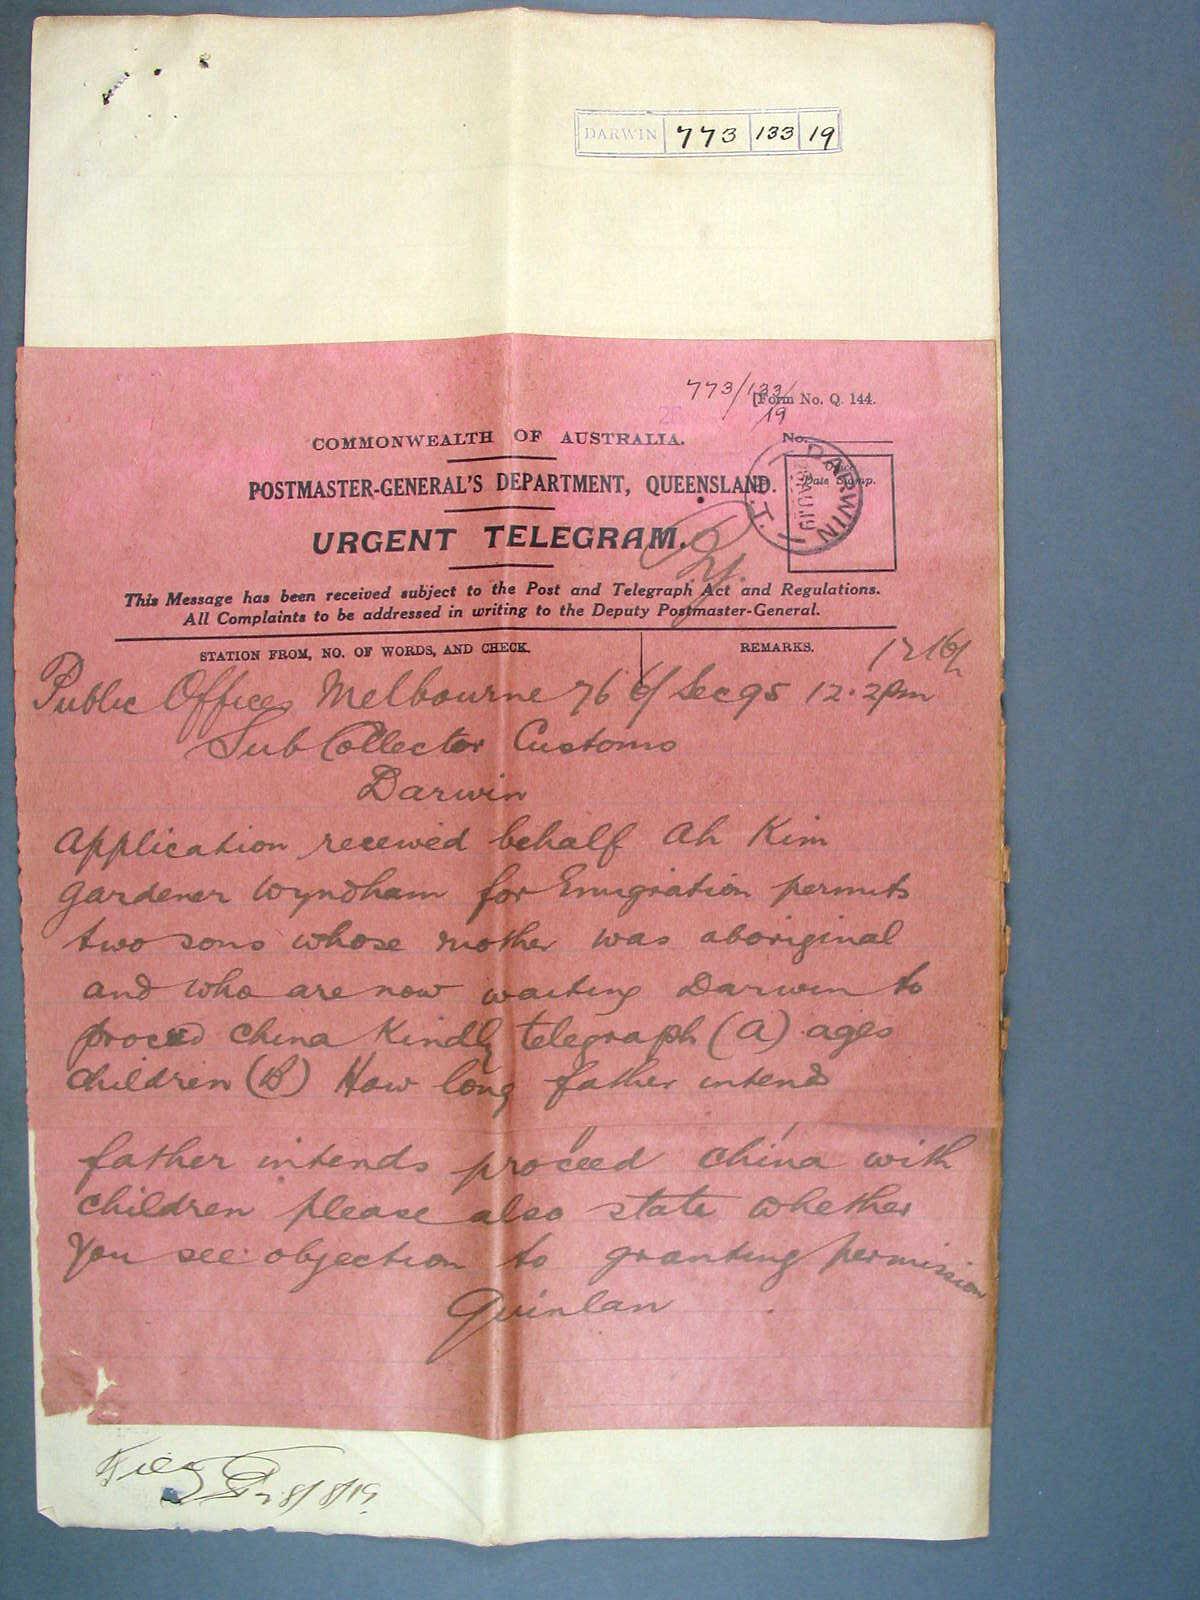 DARWIN 773 133 19
773/133/19
[Form No. Q. 144.
COMMONWEALTH OF AUSTRALIA.
No.
POSTMASTER-GENERAL'S DEPARTMENT, QUEENSLAND.
Date Stamp.
DARWIN
URGENT TELEGRAM.
This Message has been received subject to the Post and Telegraph Act and Regulations.
All Complaints to be addressed in writing to the Deputy Postmaster-General.
STATION FROM, NO. OF WORDS, AND CHECK. REMARKS.
Public Offices Melbourne 76 Sec 95 12.2pm
Sub Collector Customs
Darwin
Application received behalf Ah Kim
gardener Wyndham for Emigration permits
two sons whose mother was aboriginal
and who are now waiting Darwin to
proceed China Kindly telegraph (A) ages
children (B) How long father intend
father intends proceed China with
children please also state whether
you see objection to granting permission
Quinlan
28/8/19